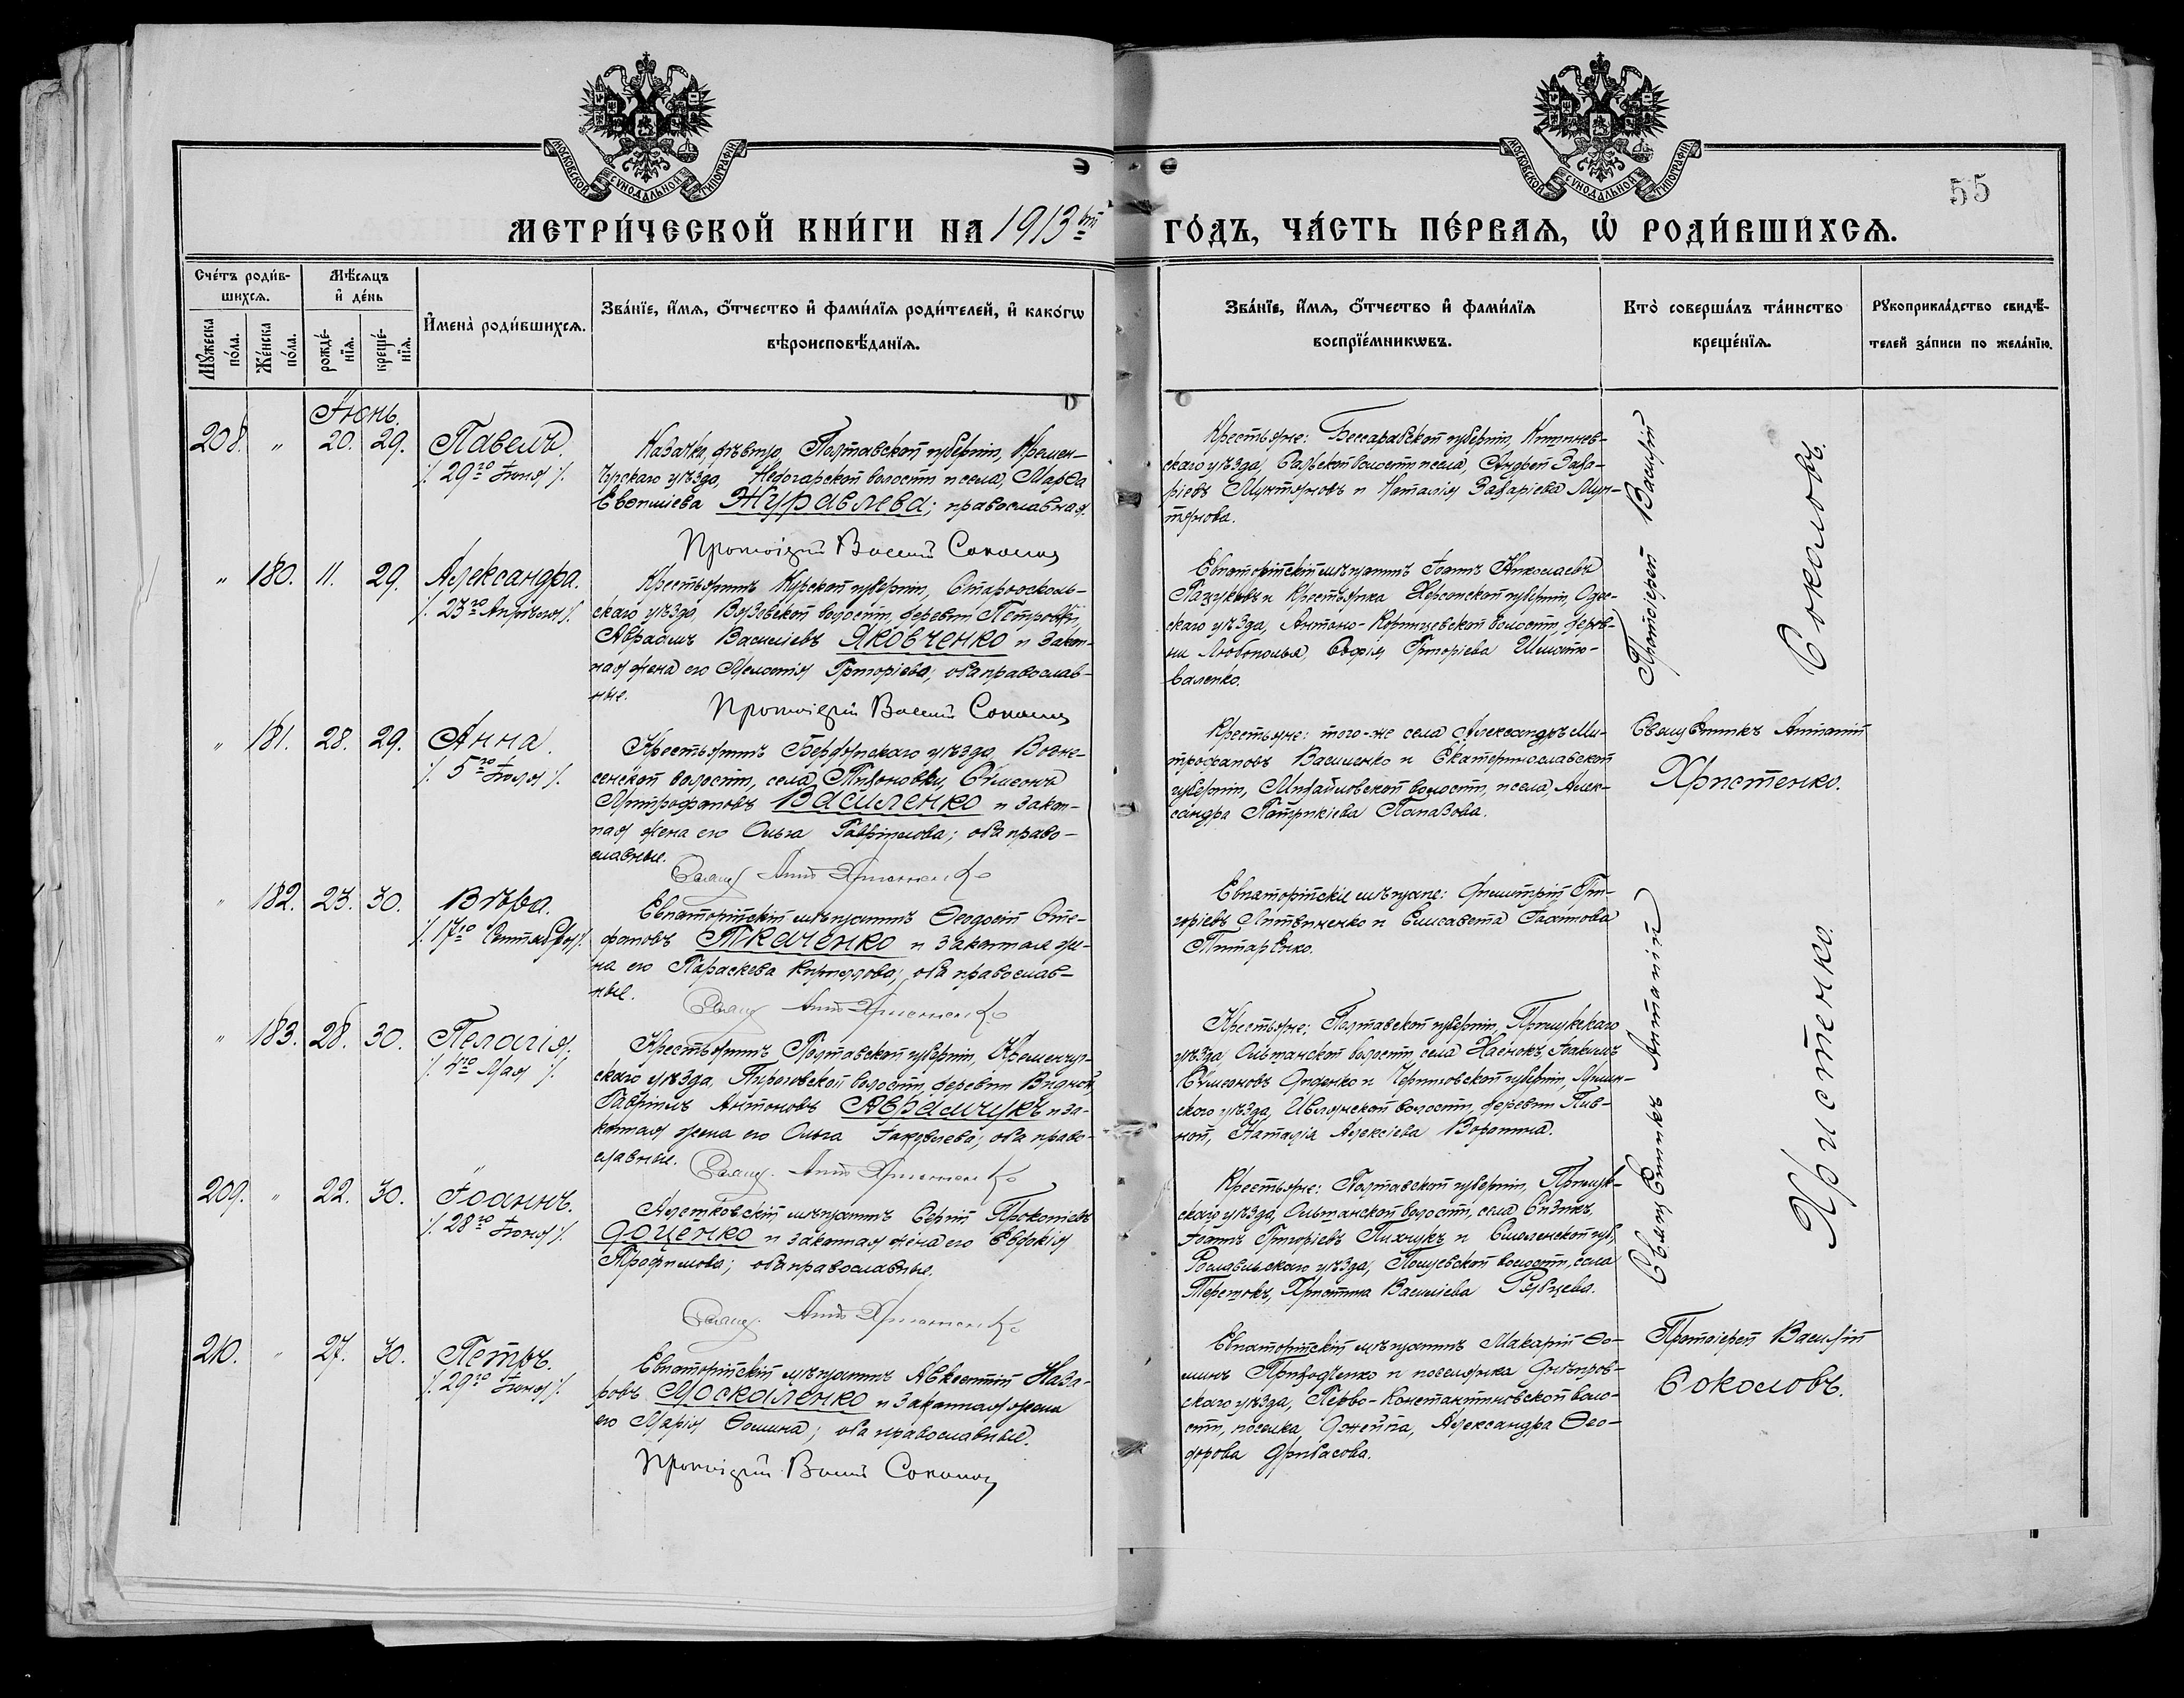 МОСКОВСКОЙ СѴНОДАЛЬНОЙ ТИПОГРАФІИ
МОСКОВСКОЙ СѴНОДАЛЬНОЙ ТИПОГРАФІИ
55
МЕТРИ́ЧЕСКОЙ КНИ́ГИ НА 1913 ый ГО́ДЪ, ЧА́СТЬ ПЕ́РВАѦ, Ѡ҆ РОДИ́ВШИХСѦ.
Сче́тъ роди́в-
шихсѧ.
Мꙋ́жеска
по́ла.
Же́нска
по́ла.
Мѣ́сѧцъ
и҆ де́нь
рожде́-
нїѧ.
креще́-
нїѧ.
И҆мена̀ роди́вшихсѧ.
Зва́нїе, и҆́мѧ, ѻ҆́тчество и҆ фами́лїѧ роди́телей, и҆ како́гѡ
вѣроисповѣ́данїѧ.
Зва́нїе, и҆́мѧ, ѻ҆́тчество и҆ фами́лїѧ
воспрїе́мникѡвъ.
Кто̀ соверша́лъ та́инство
креще́нїѧ.
Рꙋкоприкла́дство свидѣ́-
телей за́писи по жела́нїю.
Іюнь.
208. " 20. 29. Павелъ.
/. 29го Іюня /.
Казачка, дѣвица, Полтавской губерніи, Кремен-
чугскаго уѣзда, Недогарской волости и села, Марѳа
Евѳиміева Журавлева; православная.
Протоіерей Василій Соколовъ
Крестьяне: Бессарабской губерніи, Кишинев-
скаго уѣзда, волости и села, Андрей Заха-
ріевъ Мунтяновъ и Наталія Захаріева Мун-
тянова.
Протоіерей Василій
Соколовъ.
" 180. 11. 29. Александра.
/. 23го Апрѣля /.
Крестьянинъ Курской губерніи, Старооскольс-
каго уѣзда, волости, деревни Петровки,
Авраамъ Василіевъ Яковченко и закон-
ная жена его Григоріева; оба православ-
ные.
Протоіерей Василій Соколовъ
Евпаторійскій мѣщанинъ Іоаннъ Николаевъ
и крестьянка Херсонской губерніи, Одес-
скаго уѣзда, Антоно-Коринцевской волости, дерев-
ни Любополья, Софія Григоріева
валенко.
" 181. 28. 29. Анна.
/. 5го Іюля /.
Крестьянинъ Бердянскаго уѣзда, Возне-
сенской волости, села Тихоновки, Сѵмеонъ
Митрофановъ Василенко и закон-
ная жена его Ольга Гавріилова; оба право-
славные.
Свящ. Антон. Христенко
Крестьяне: того-же села Александръ Ми-
трофановъ Василенко и Екатеринославской
губерніи, Михайловской волости, и села, Алек-
сандра Патрикіева
Священникъ Антоній
Христенко.
" 182. 23. 30. Вѣра.
/. 17го Сентября /.
Евпаторійскій мѣщанинъ Ѳеодосій Сте-
фановъ Ткаченко и законная же-
на его Параскева Кириллова; оба православ-
ные.
Свящ. Антон. Христенко
Евпаторійскіе мѣщане: Димитрій Гри-
горіевъ Литвиненко и Елисавета
Титаренко.
Священникъ Антоній
Христенко.
" 183. 28. 30. Пелагія.
/. 4го Мая /.
Крестьянинъ Полтавской губерніи, Кременчуг-
скаго уѣзда, Пироговской волости, деревни
Гавріилъ Антоновъ Аврамчукъ и за-
конная жена его Ольга Іаковлева; оба право-
славные.
Свящ. Антон. Христенко
Крестьяне: Полтавской губерніи, Прилукскаго
уѣзда, Ольшанской волости, села Іоакимъ
Сѵмеоновъ Диденко и Черниговской губерніи,
скаго уѣзда, волости, деревни Пив-
ной, Наталія Алексіева Воронина.
209. " 22. 30. Іоаннъ.
/. 28го Іюня /.
Алешковскій мѣщанинъ Сергій Прокопіевъ
Доценко и законная жена его Евдокія
Трофимова; оба православные.
Свящ. Антон. Христенко
Крестьяне: Полтавской губерніи, Прилук-
скаго уѣзда, Ольшанской волости, села
Іоаннъ Григоріевъ и Смоленской губ.,
Рославльскаго уѣзда, волости, села
Христина Василіева
210. " 27. 30. Петръ.
/. 29го Іюня /.
Евпаторійскій мѣщанинъ Авксентій Наза-
ровъ Москаленко и законная жена
его Марія Ѳомина; оба православные.
Протоіерей Василій Соколовъ
Евпаторійскій мѣщанинъ Макарій Ѳо-
минъ Приходченко и поселянка Днѣпров-
скаго уѣзда, Перво-Константиновской воло-
сти, поселка Александра Ѳео-
дорова
Протоіерей Василій
Соколовъ.